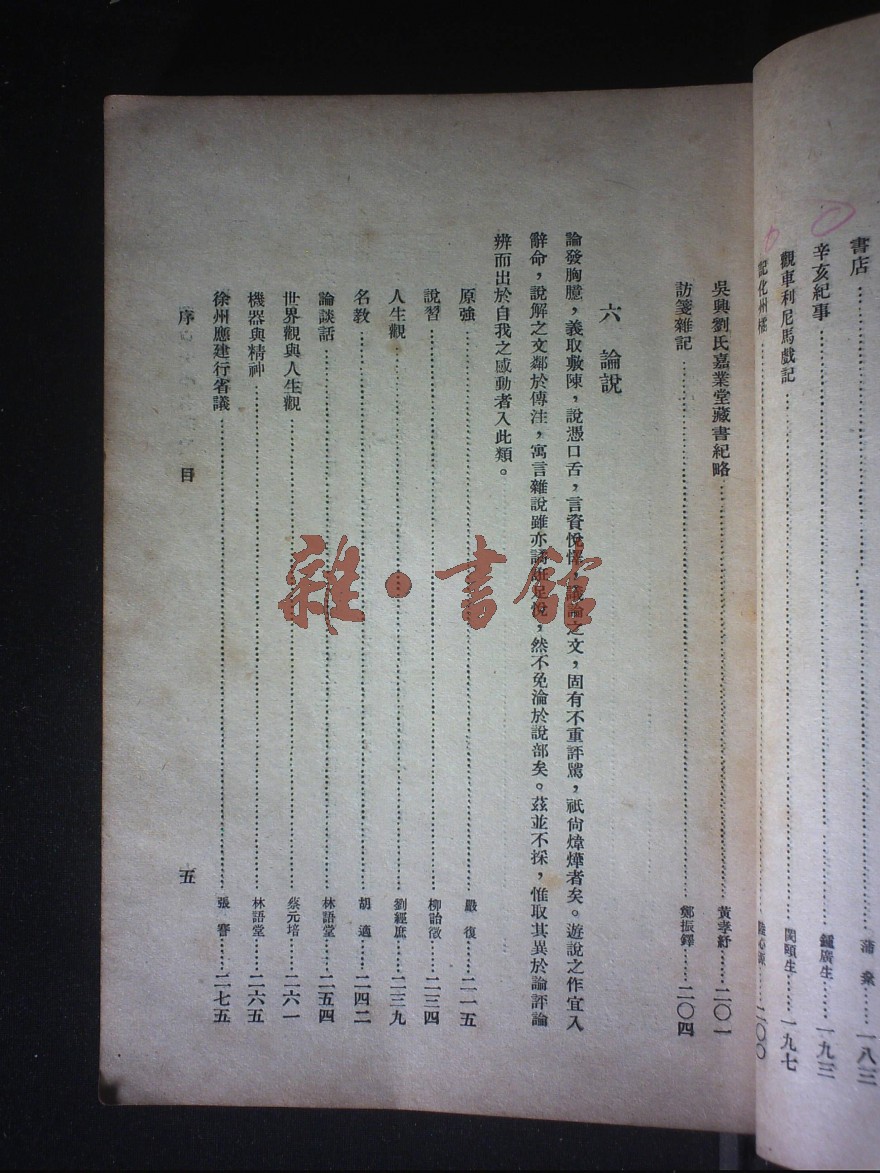 書店……蒲梟……一八三
辛亥紀事……鍾廣生……一九三
觀車利尼馬戲記……閔頤生……一九七
記化州橘……二〇〇
吳興劉氏嘉業堂藏書紀略……黃孝紓……二〇一
訪箋雜記……鄭振鐸……二〇四
六 論說
論發胸臆，義取敷陳，說憑口舌，言資悅懌，議論之文，固有不重評騭，祇尙煒燁者矣。遊說之作宜入
辭命，說解之文鄰於傳注，寓言雜說雖亦譎誑足悅，然不免淪於說部矣。茲並不採，惟取其異於論評論
辨而出於自我之感動者入此類。
原強……嚴復……二一五
說習……柳詒徵……二三四
人生觀……劉經庶……二三九
名教……胡適……二四二
論談話……林語堂……二五四
世界觀與人生觀……蔡元培……二六一
機器與精神……林語堂……二六五
徐州應建行省議……張謇……二七五
序目 五
雜·書館